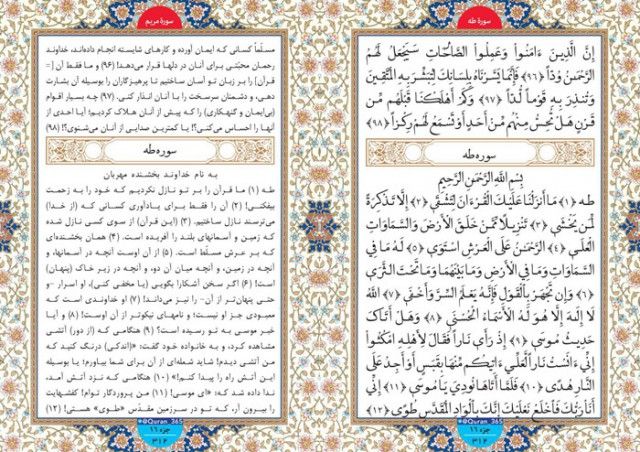 سورهٔ طه
إِنَّ الَّذِينَ ءَامَنُوا وَعَمِلُوا الصَّالِحَاتِ سَيَجْعَلُ لَهُمُ
الرَّحْمَنُ وُدّاً ﴿۹۶﴾ فَإِنَّمَا يَسَّرْنَاهُ بِلِسَانِكَ لِتُبَشِّرَ بِهِ الْمُتَّقِينَ
وَتُنذِرَ بِهِ قَوْماً لُّدّاً ﴿۹۷﴾ وَكَمْ أَهْلَكْنَا قَبْلَهُم مِّن
قَرْنٍ هَلْ تُحِسُّ مِنْهُم مِّنْ أَحَدٍ أَوْ تَسْمَعُ لَهُمْ رِكْزاً ﴿۹۸﴾
سوره طه
بِسْمِ اللهِ الرَّحْمَنِ الرَّحِيمِ
طه ﴿۱﴾ مَا أَنزَلْنَا عَلَيْكَ الْقُرْءَانَ لِتَشْقَى ﴿۲﴾ إِلَّا تَذْكِرَةً
لِّمَن يَخْشَى ﴿۳﴾ تَنزِيلاً مِّمَّنْ خَلَقَ الْأَرْضَ وَالسَّمَاوَاتِ
الْعُلَى ﴿۴﴾ الرَّحْمَنُ عَلَى الْعَرْشِ اسْتَوَى ﴿۵﴾ لَهُ مَا فِي
السَّمَاوَاتِ وَمَا فِي الْأَرْضِ وَمَا بَيْنَهُمَا وَمَا تَحْتَ الثَّرَى
﴿۶﴾ وَإِن تَجْهَرْ بِالْقَوْلِ فَإِنَّهُ يَعْلَمُ السِّرَّ وَأَخْفَى ﴿۷﴾ اللهُ
لَا إِلَهَ إِلَّا هُوَ لَهُ الْأَسْمَاءُ الْحُسْنَى ﴿۸﴾ وَهَلْ أَتَاكَ
حَدِيثُ مُوسَى ﴿۹﴾ إِذْ رَأَى نَاراً فَقَالَ لِأَهْلِهِ امْكُثُوا
إِنِّي ءَانَسْتُ نَاراً لَّعَلِّي ءَاتِيكُم مِّنْهَا بِقَبَسٍ أَوْ أَجِدُ عَلَى
النَّارِ هُدًى ﴿۱۰﴾ فَلَمَّا أَتَاهَا نُودِيَ يَا مُوسَى ﴿۱۱﴾ إِنِّي
أَنَا رَبُّكَ فَاخْلَعْ نَعْلَيْكَ إِنَّكَ بِالْوَادِ الْمُقَدَّسِ طُوًى ﴿۱۲﴾
@Quran_365
جزء ۱۶
۳۱۲
سورهٔ مریم
مسلّماً کسانی که ایمان آورده و کارهای شایسته انجام داده‌اند، خداوند
رحمان محبّتی برای آنان در دلها قرار می‌دهد! (۹۶) و ما فقط آن [=
قرآن] را بر زبان تو آسان ساختیم تا پرهیزگاران را بوسیله آن بشارت
دهی، و دشمنان سرسخت را با آن انذار کنی. (۹۷) چه بسیار اقوام
(بی‌ایمان و گنهکاری) را که پیش از آنان هلاک کردیم؛ آیا احدی از
آنها را احساس می‌کنی؟! یا کمترین صدایی از آنان می‌شنوی؟! (۹۸)
سوره طه
به نام خداوند بخشنده مهربان
طه (۱) ما قرآن را بر تو نازل نکردیم که خود را به زحمت
بیفکنی! (۲) آن را فقط برای یادآوری کسانی که (از خدا)
می‌ترسند نازل ساختیم. (۳) (این قرآن) از سوی کسی نازل شده
که زمین و آسمانهای بلند را آفریده است. (۴) همان بخشنده‌ای
که بر عرش مسلّط است. (۵) از آن اوست آنچه در آسمانها، و
آنچه در زمین، و آنچه میان آن دو، و آنچه در زیر خاک (پنهان)
است! (۶) اگر سخن آشکارا بگویی (یا مخفی کنی)، او اسرار -و
حتی پنهان‌تر از آن- را نیز می‌داند! (۷) او خداوندی است که
معبودی جز او نیست؛ و نامهای نیکوتر از آن اوست! (۸) و آیا
خبر موسی به تو رسیده است؟ (۹) هنگامی که (از دور) آتشی
مشاهده کرد، و به خانواده خود گفت: «(اندکی) درنگ کنید که
من آتشی دیدم! شاید شعله‌ای از آن برای شما بیاورم؛ یا بوسیله
این آتش راه را پیدا کنم!» (۱۰) هنگامی که نزد آتش آمد،
ندا داده شد که: «ای موسی! (۱۱) من پروردگار توام! کفشهایت
را بیرون آر، که تو در سرزمین مقدّس «طوی» هستی! (۱۲)
@Quran_365
جزء ۱۶
۳۱۲